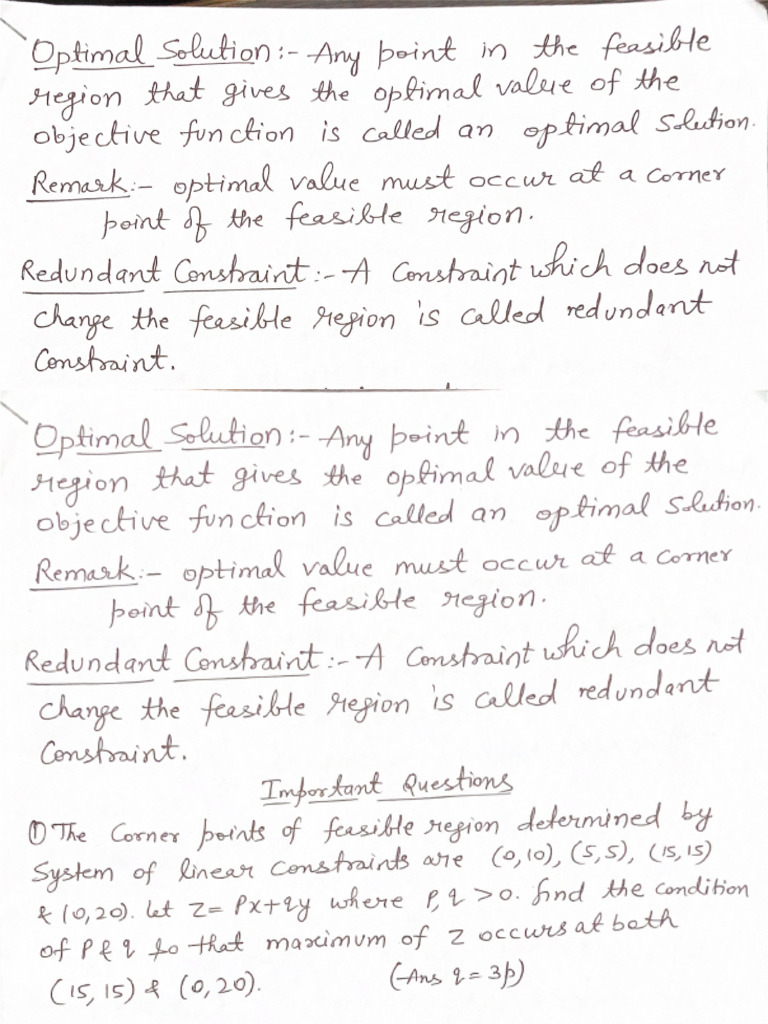 Optimal Solution :- Any point in the feasible
region that gives the optimal value of the
objective function is called an optimal Solution.
Remark:- optimal value must occur at a corner
point of the feasible region.
Redundant Constraint :- A Constraint which does not
change the feasible region is called redundant
Constraint.
Optimal Solution :- Any point in the feasible
region that gives the optimal value of the
objective function is called an optimal Solution.
Remark:- optimal value must occur at a corner
point of the feasible region.
Redundant Constraint :- A Constraint which does not
change the feasible region is called redundant
Constraint.
Important Questions
① The Corner points of feasible region determined by
System of linear constraints are (0,10), (5,5), (15,15)
& (0,20). let Z = Px+qy where P,q >0. find the condition
of P & q so that maximum of Z occurs at both
(15,15) & (0,20). (Ans q = 3p)